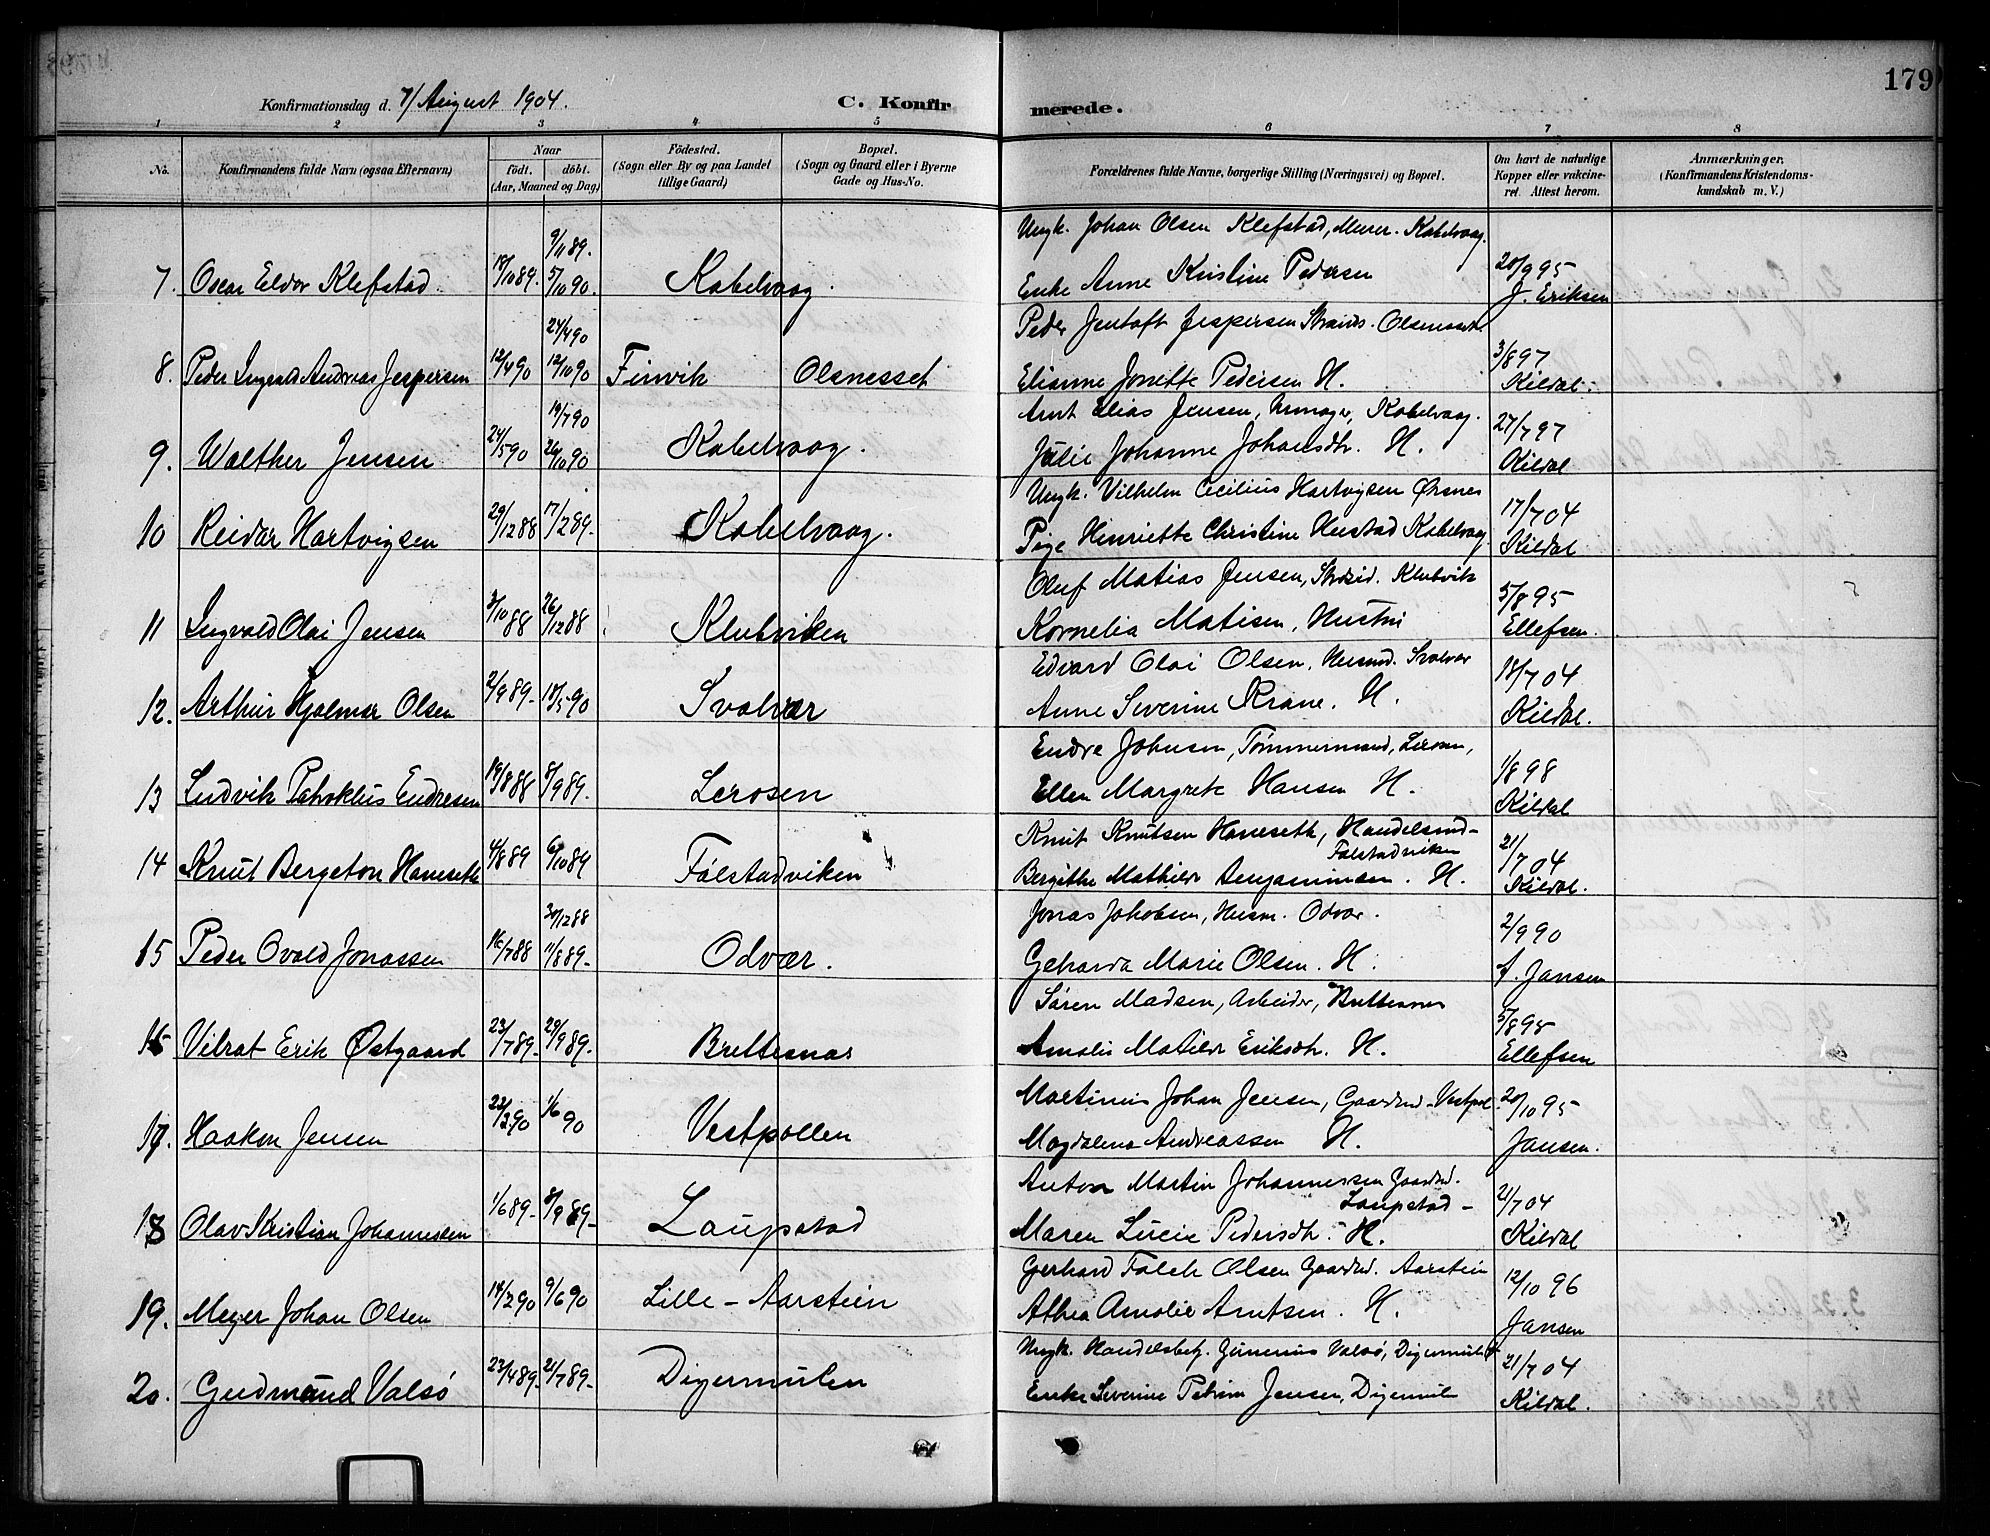 179
Konfirmationsdag d. 7/ August 1904.
C. Konfir
merede.
1 2 3 4 5 6 7 8
No.
Konfirmandens fulde Navn (ogsaa Efternavn)
Naar
født. døbt.
(Aar, Maaned og Dag)
Fødested.
(Sogn eller By og paa Landet
tillige Gaard)
Bopæl.
(Sogn og Gaard eller i Byerne
Gade og Hus-No.
Forældrenes fulde Navne, borgerlige Stilling (Næringsvei) og Bopæl.
Om havt de naturlige
Kopper eller vakcine-
ret. Attest herom.
Anmærkninger.
(Konfirmandens Kristendoms-
kundskab m. V.)
Ungk. Johan Olsen Klefstad, Murer. Kabelvaag.
9/11 89.
7. Oscar Eldor Klefstad. 18/10 89. 5/10 90. Kabelvaag. Enke Anne Kristine Pedersen 20/9 95
J. Eriksen
24/4 90 Peder Jentoft Jespersen Strands. Olsnesset.
8. Peder Ingvald Andreas Jespersen 12/4 90 12/10 90 Finvik Olsnesset Elianne Jonette Pedersen H. 3/8 97
Kildal.
19/7 90 Arnt Elias Jensen, Urmager, Kabelvaag.
9. Walther Jensen 24/5 90 26/10 90 Kabelvaag. Julie Johanne Johansdtr. H. 27/7 97
Kildal
Ungk. Vilhelm Cecilius Hartvigsen Ørsnes
10 Reidar Hartvigsen 29/12 88 17/2 89. Kabelvaag. Pige Henriette Christine Hustad Kabelvaag 17/7 04
Kildal
Oluf Matias Jensen, Strdsid. Klubvik
11 Ingvald Olai Jensen 3/10 88 26/12 88 Klubviken Kornelia Matisen, Hustru 5/8 95
Ellefsen.
Edvard Olai Olsen, Husmd. Svolvær
12. Arthur Hjalmar Olsen 2/9 89. 18/5 90 Svolvær Anne Severine Krane. H. 18/7 04
Kildal.
Endre Johnsen, Tømmermand, Lerosen,
13 Ludvik Patroklus Endresen 19/8 88 8/9 89. Lerosen Ellen Margrete Hansen H. 1/8 98
Kildal
Knut Knutsen Haneseth, Handelsmd-
Falstadviken
14 Knut Bergeton Haneseth 4/8 89 6/10 89 Falstadviken Bergithe Mathilde Benjaminsen. H. 21/7 04
Kildal.
30/12 88 Jonas Jakobsen, Husm. Odvær.
15 Peder Ovald Jonassen 16/7 88 11/8 89- Odvær. Gerharda Marie Olsen. H. 2/9 90
A. Jansen
Søren Madsen, Arbeider, Brettesnes
16 Vilrat Erik Østgaard 23/7 89- 29/9 89. Brettesnæs Amalie Matilde Eriksdtr. H. 5/8 95
Ellefsen
Martinus Johan Jensen, Gaardmd. Vestpol.
17. Haakon Jensen 22/3 90 1/6 90 Vestpollen Magdalena Andreassen H. 20/10 95
Jansen.
Anton Martin Johannessen Gaardmd.
Laupstad -
18 Olav Kristian Johannessen 1/6 89- 8/9 89- Laupstad Maren Lucie Pedersdtr. H. 21/7 04
Kildal
Gerhard Falck Olsen Gaardmd. Aarstein
19. Meyer Johan Olsen 14/2 90 9/6 90 Lille-Aarstein Althea Amalie Arntsen. H. 12/10 96
Jansen
Ungk. Handelsbetj. Gunerius Valsø, Digermulen
20. Gudmund Valsø 23/4 89. 21/7 89- Digermulen Enke Severine Petrine Jensen, Digermulen 21/7 04
Kildal.